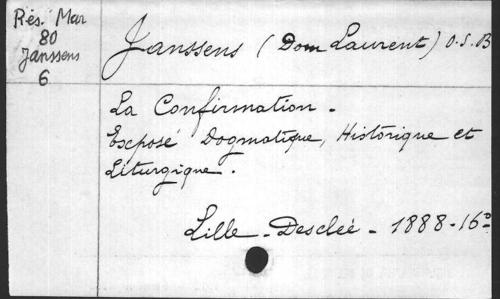 Rés. Mar
80
Janssens
6
Janssens (Dom Laurent) O.S.B
La Confirmation.
Exposé Dogmatique, Historique et
Liturgique.
Lille - Desclée - 1888 - 16°